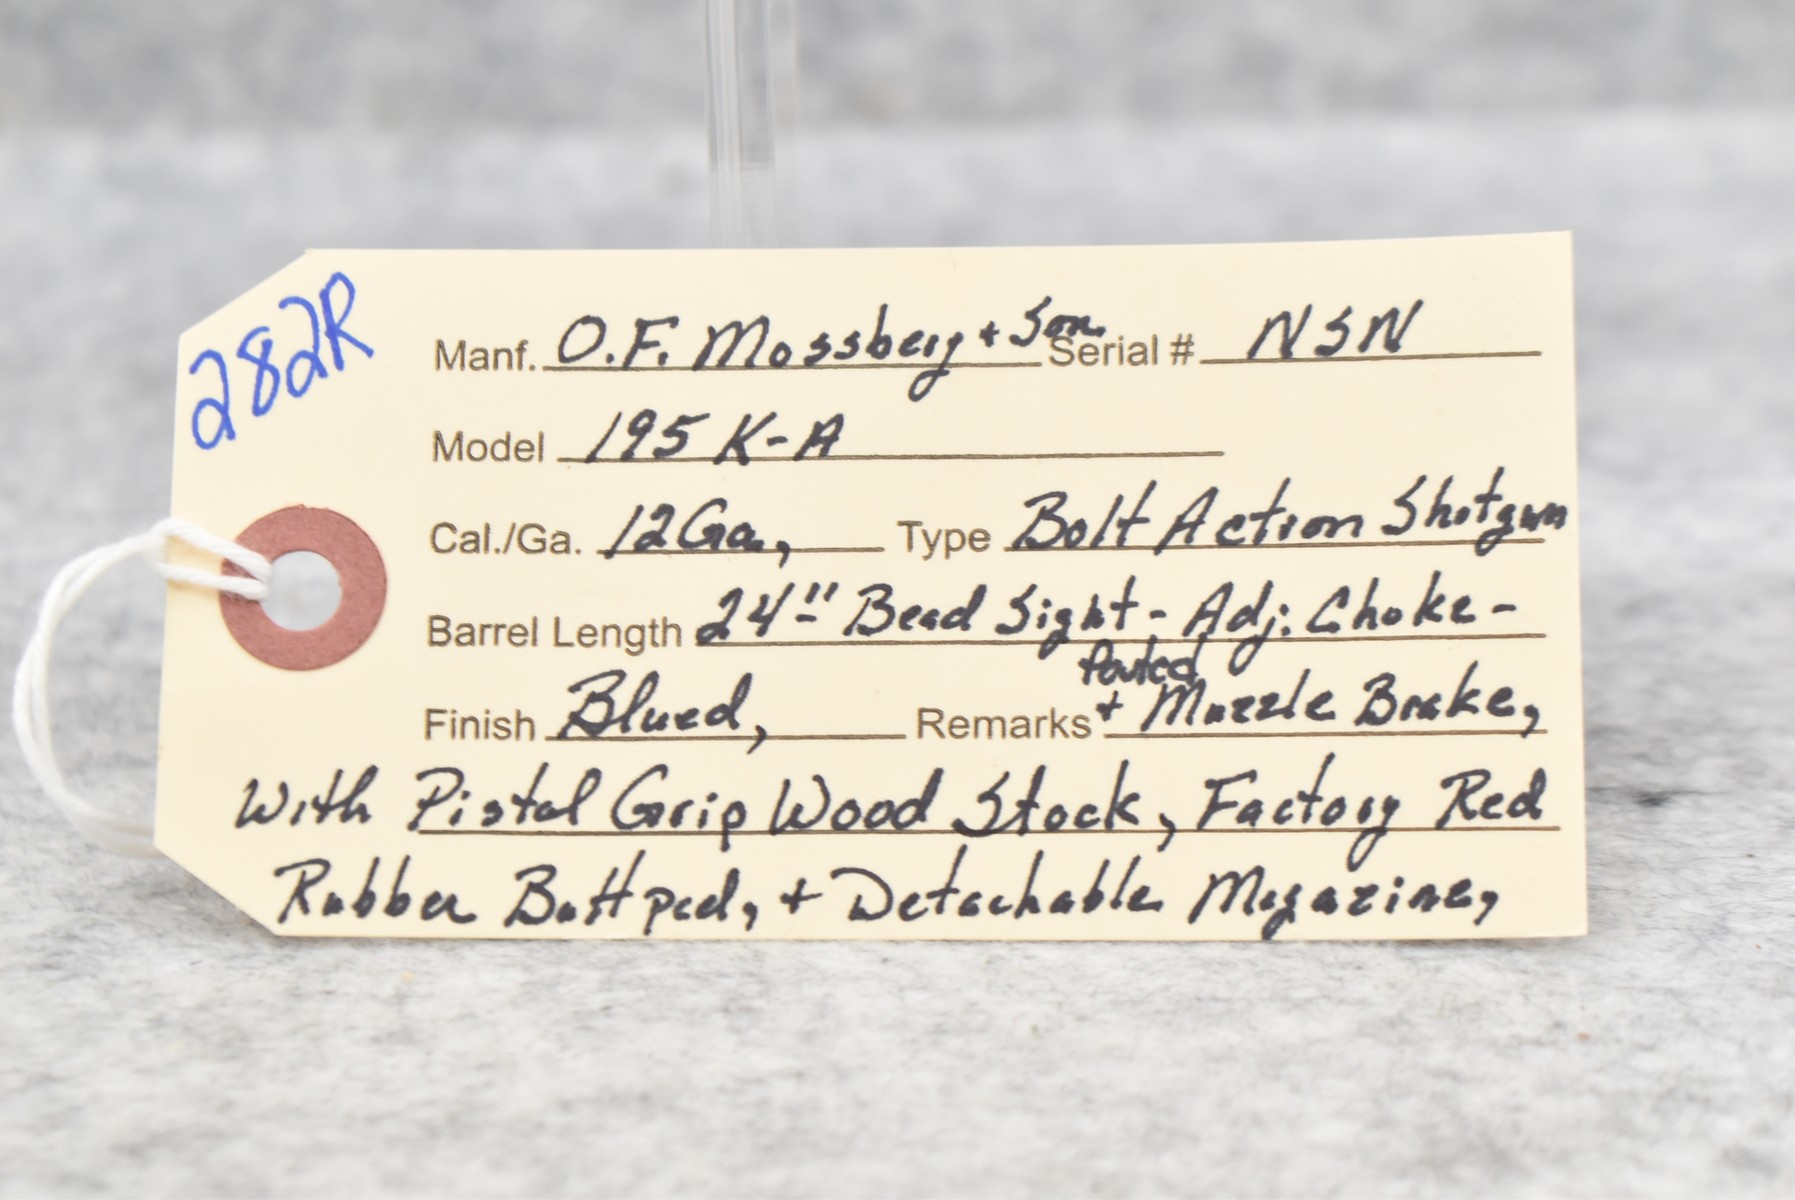 282R
Manf. O.F. Mossberg + Son. Serial # NSN
Model 195 K-A
Cal./Ga. 12 Ga, Type Bolt Action Shotgun
Barrel Length 24" Bead Sight - Adj: Choke -
Ported
Finish Blued, Remarks + Muzzle Brake,
With Pistol Grip Wood Stock, Factory Red
Rubber Buttpad, + Detachable Magazine,